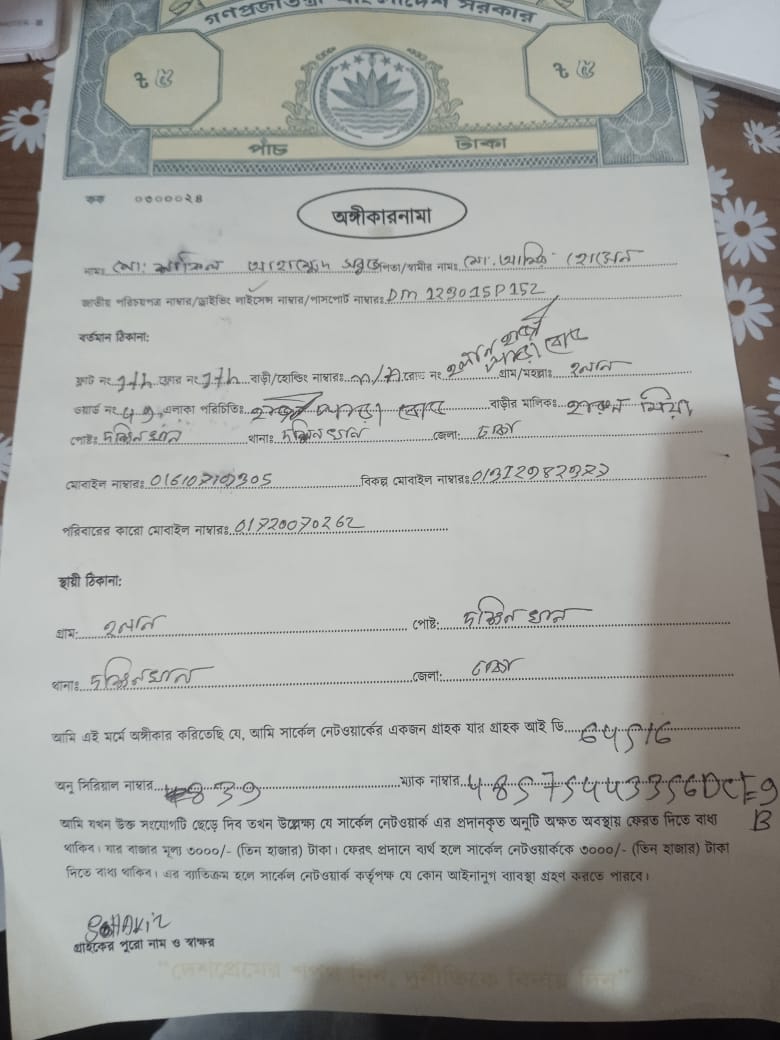 গণপ্রজাতন্ত্রী বাংলাদেশ সরকার
৳ ৫ ৳ ৫
পাঁচ টাকা
কক ৩৩০০০২৪
অঙ্গীকারনামা
নামঃ মো: আহাম্মেদ পিতা/স্বামীর নামঃ মো. হোসেন
জাতীয় পরিচয়পত্র নাম্বার/ড্রাইভিং লাইসেন্স নাম্বার/পাসপোর্ট নাম্বারঃ DM 129015P152
বর্তমান ঠিকানা:
ফ্লাট নং 7th ফ্লোর নং 7th বাড়ী/হোল্ডিং নাম্বারঃ রোড নং গ্রাম/মহল্লাঃ হলান
ওয়ার্ড নং এলাকা পরিচিতিঃ রোড বাড়ীর মালিকঃ মিয়া
পোষ্টঃ দক্ষিনখান থানাঃ দক্ষিনখান জেলা: ঢাকা
মোবাইল নাম্বারঃ বিকল্প মোবাইল নাম্বারঃ
পরিবারের কারো মোবাইল নাম্বারঃ 01720070262
স্থায়ী ঠিকানা:
গ্রাম: হলান পোষ্ট: দক্ষিনখান
থানাঃ দক্ষিনখান জেলা: ঢাকা
আমি এই মর্মে অঙ্গীকার করিতেছি যে, আমি সার্কেল নেটওয়ার্কের একজন গ্রাহক যার গ্রাহক আই ডি
অনু সিরিয়াল নাম্বার 839 ম্যাক নাম্বার
আমি যখন উক্ত সংযোগটি ছেড়ে দিব তখন উল্লেক্ষ্য যে সার্কেল নেটওয়ার্ক এর প্রদানকৃত অনুটি অক্ষত অবস্থায় ফেরত দিতে বাধ্য B
থাকিব। যার বাজার মূল্য ৩০০০/- (তিন হাজার) টাকা। ফেরৎ প্রদানে ব্যর্থ হলে সার্কেল নেটওয়ার্ককে ৩০০০/- (তিন হাজার) টাকা
দিতে বাধ্য থাকিব। এর ব্যাতিক্রম হলে সার্কেল নেটওয়ার্ক কর্তৃপক্ষ যে কোন আইনানুগ ব্যাবস্থা গ্রহণ করতে পারবে।
গ্রাহকের পুরো নাম ও স্বাক্ষর
"দেশপ্রেমের শপথ নিন, দুর্নীতিকে বিদায় দিন"